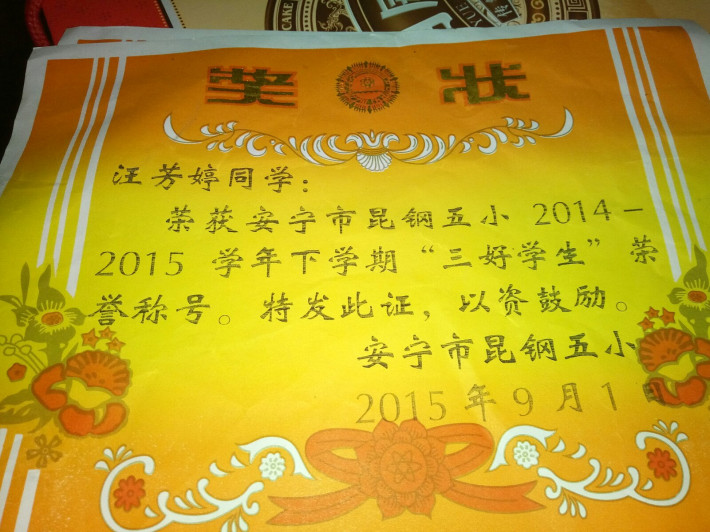 CAKE
YUE
奖 状
汪芳婷同学：
荣获安宁市昆钢五小 2014－
2015 学年下学期“三好学生”荣
誉称号。特发此证，以资鼓励。
安宁市昆钢五小
2015 年 9 月 1 日